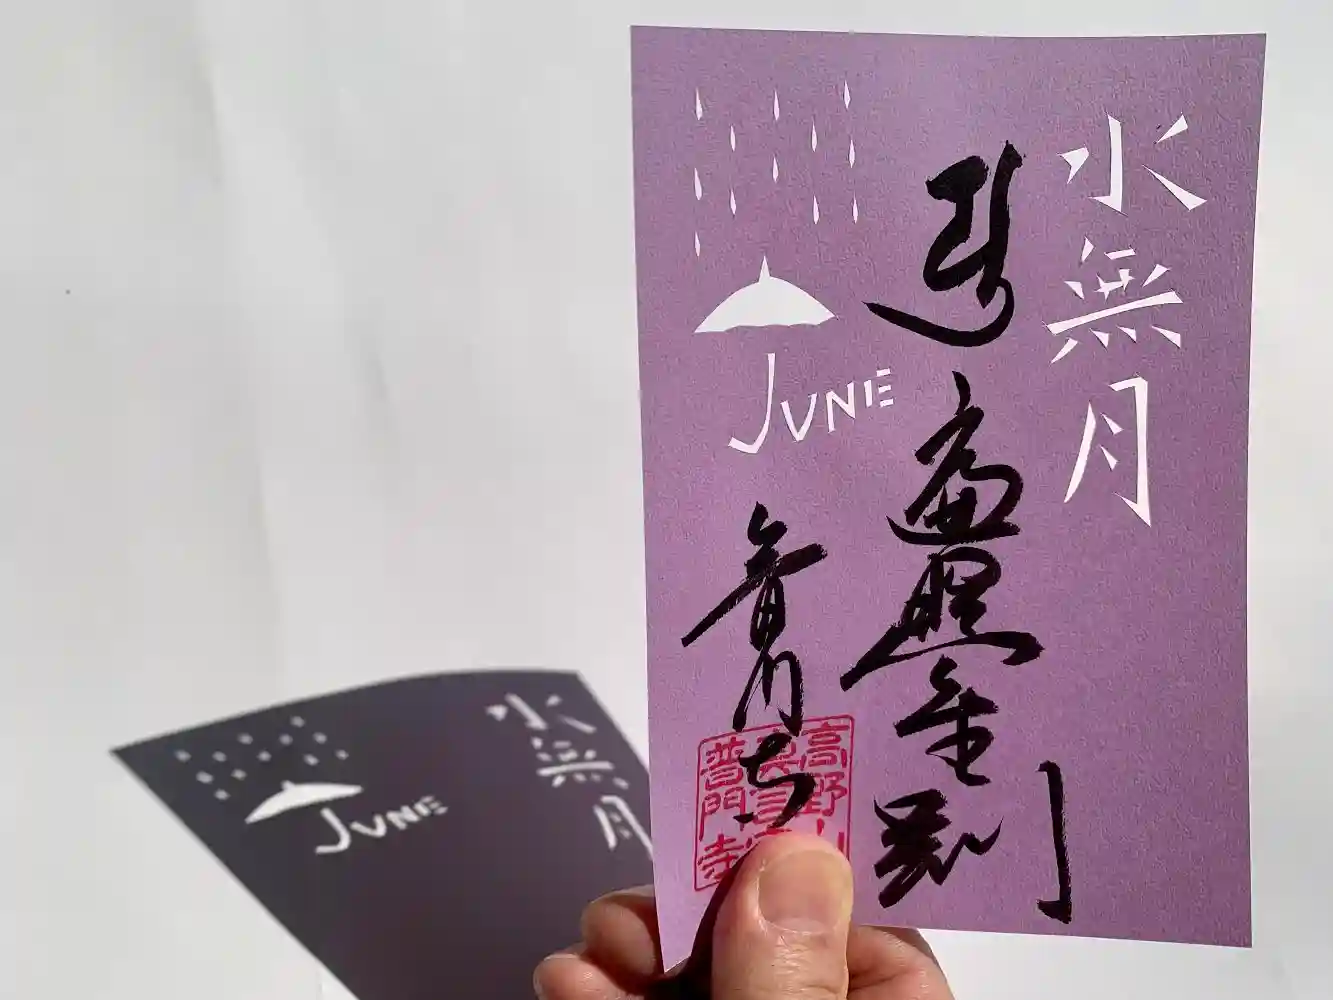 水無月
遍照金剛
JUNE
普門寺
高野山
真言宗
普門寺
水無月
JUNE